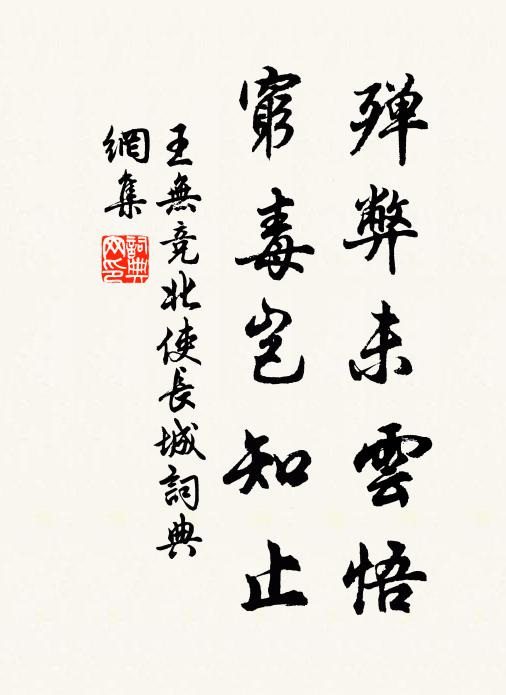 殫弊未雲悟
窮毒岂知止
王無竞北使長城詞典
網集
詞典网印